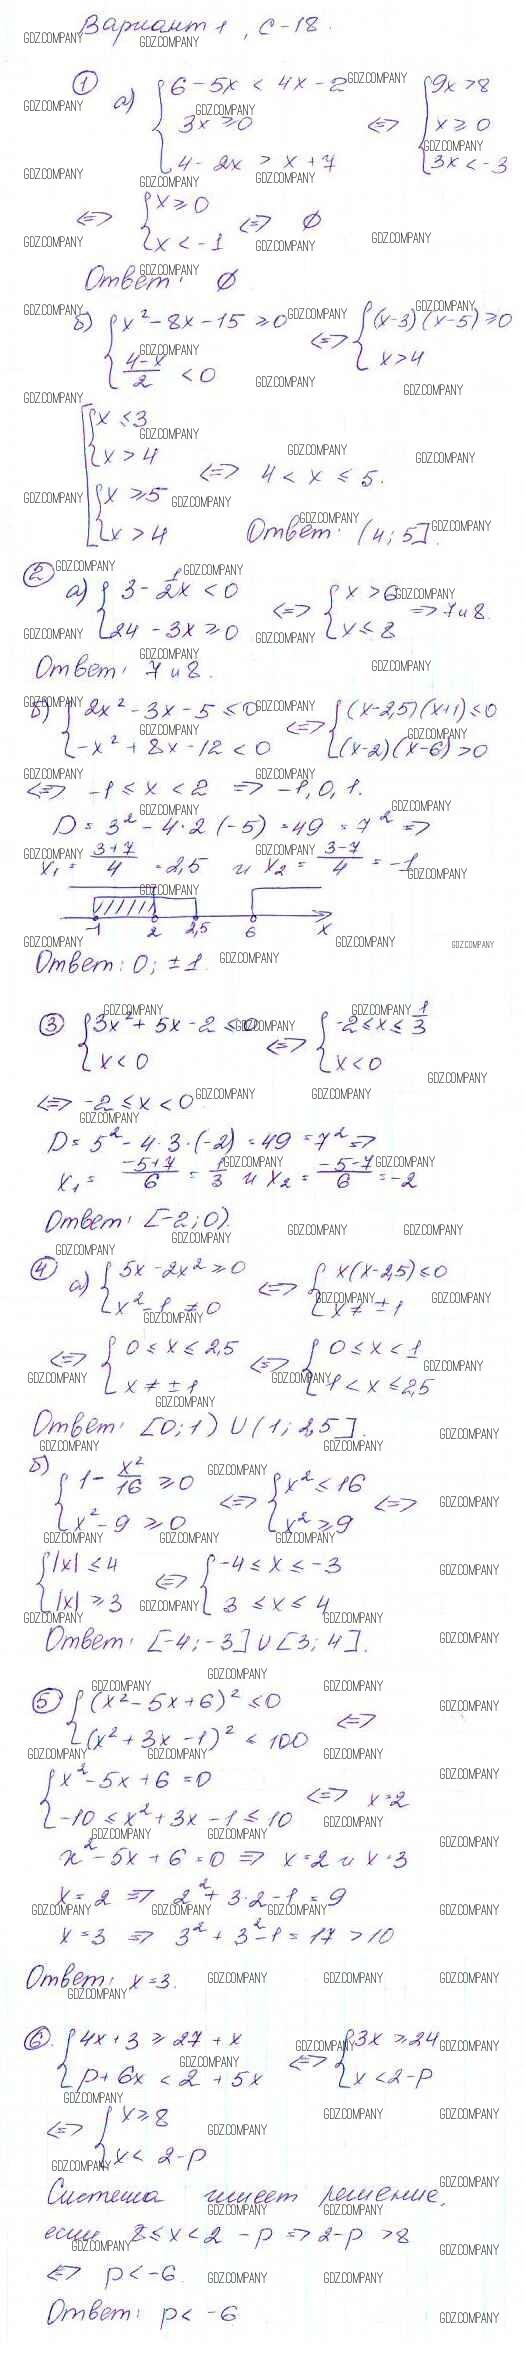 Вариант 1, С-18.
① а) { 6 - 5x < 4x - 2
3x ≥ 0
4 - 2x > x + 7
⇔ { 9x > 8
x ≥ 0
3x < -3
⇔ { x ≥ 0
x < -1 ⇔ ∅
Ответ: ∅
б) { x² - 8x - 15 ≥ 0
(4-x)/2 < 0
⇔ { (x-3)(x-5) ≥ 0
x > 4
[ { x ≤ 3
x > 4
{ x ≥ 5
x > 4
⇔ 4 < x ≤ 5.
Ответ: (4; 5].
② а) { 3 - 1/2x < 0
24 - 3x ≥ 0
⇔ { x > 6
x ≤ 8 ⇒ 7 и 8.
Ответ: 7 и 8.
б) { 2x² - 3x - 5 ≤ 0
-x² + 8x - 12 < 0
⇔ { (x-2,5)(x+1) ≤ 0
(x-2)(x-6) > 0
⇔ -1 ≤ x < 2 ⇒ -1, 0, 1.
D = 3² - 4·2(-5) = 49 = 7² ⇒
x₁ = (3+7)/4 = 2,5 и x₂ = (3-7)/4 = -1
-1 2 2,5 6 x
Ответ: 0; ±1.
③ { 3x² + 5x - 2 ≤ 0
x < 0
⇔ { -2 ≤ x ≤ 1/3
x < 0
⇔ -2 ≤ x < 0
D = 5² - 4·3·(-2) = 49 = 7² ⇒
x₁ = (-5+7)/6 = 1/3 и x₂ = (-5-7)/6 = -2
Ответ: [-2; 0).
④ а) { 5x - 2x² ≥ 0
x² - 1 ≠ 0
⇔ { x(x-2,5) ≤ 0
x ≠ ±1
⇔ { 0 ≤ x ≤ 2,5
x ≠ ±1
⇔ { 0 ≤ x < 1
1 < x ≤ 2,5
Ответ: [0; 1) ∪ (1; 2,5].
б) { 1 - x²/16 ≥ 0
x² - 9 ≥ 0
⇔ { x² ≤ 16
x² ≥ 9 ⇔
{ |x| ≤ 4
|x| ≥ 3
⇔ { -4 ≤ x ≤ -3
3 ≤ x ≤ 4
Ответ: [-4; -3] ∪ [3; 4].
⑤ { (x² - 5x + 6)² ≤ 0
(x² + 3x - 1)² ≤ 100
⇔
{ x² - 5x + 6 = 0
-10 ≤ x² + 3x - 1 ≤ 10
⇔ x = 2
x² - 5x + 6 = 0 ⇒ x = 2 и x = 3
x = 2 ⇒ 2² + 3·2 - 1 = 9
x = 3 ⇒ 3² + 3² - 1 = 17 > 10
Ответ: x = 3.
⑥ { 4x + 3 ≥ 27 + x
p + 6x < 2 + 5x
⇔ { 3x ≥ 24
x < 2 - p
⇔ { x ≥ 8
x < 2 - p
Система имеет решение,
если 8 ≤ x < 2 - p ⇒ 2 - p > 8
⇔ p < -6
Ответ: p < -6
GDZ.COMPANY